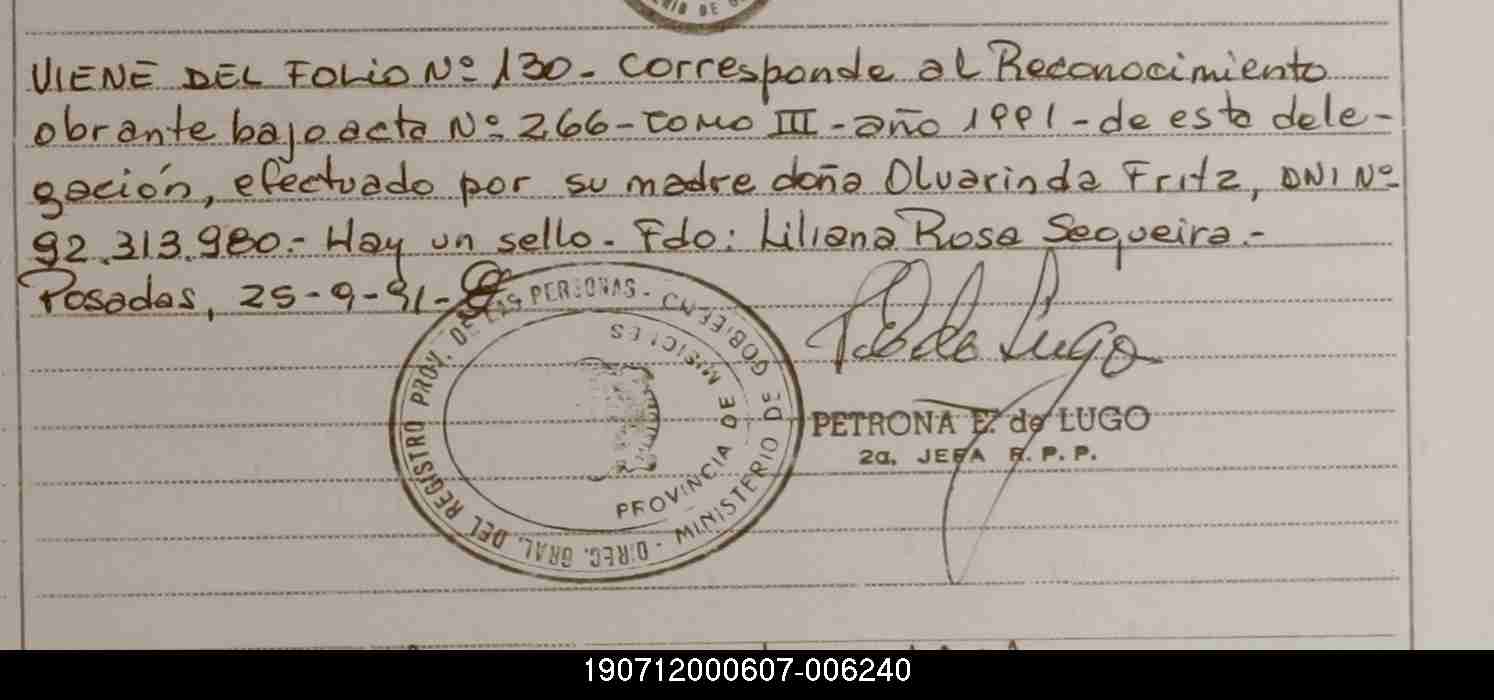 VIENE DEL FOLIO Nº 130. Corresponde al Reconocimiento
obrante bajo acta Nº 266 - tomo III - año 1991 - de esta dele-
gación, efectuado por su madre doña Olvarinda Fritz, DNI Nº
92.313.980.- Hay un sello. Fdo: Liliana Rosa Sequeira.-
Posadas, 25-9-91-
DIREC. GRAL. DEL REGISTRO PROV. DE LAS PERSONAS -
MINISTERIO DE GOBIERNO
PROVINCIA DE MISIONES
de Lugo
PETRONA E. de LUGO
2a. JEFA R. P. P.
190712000607-006240